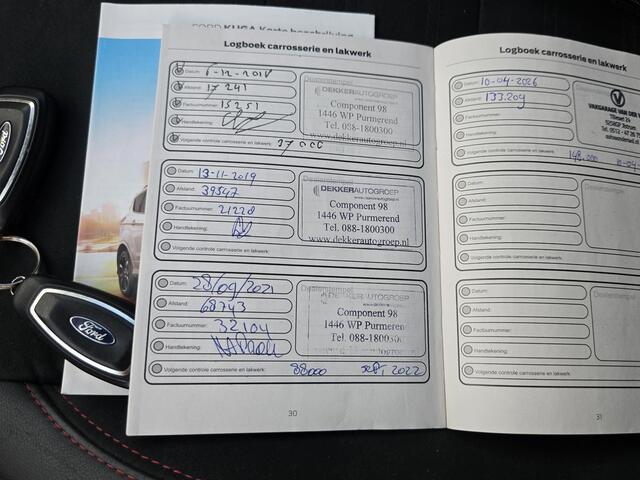 FORD KUGA Korte beschrijving
Logboek carrosserie en lakwerk
Datum: 6-12-2018
Afstand: 17241
Factuurnummer: 15251
Handtekening:
Volgende controle carrosserie en lakwerk: 37000
Dealerstempel
DEKKERAUTOGROEP
Component 98
1446 WP Purmerend
Tel. 088-1800300
www.dekkerautogroep.nl
Datum: 13-11-2019
Afstand: 39547
Factuurnummer: 21228
Handtekening:
Volgende controle carrosserie en lakwerk:
Dealerstempel
DEKKERAUTOGROEP
Component 98
1446 WP Purmerend
Tel. 088-1800300
www.dekkerautogroep.nl
Datum: 28/09/2021
Afstand: 68743
Factuurnummer: 32104
Handtekening:
Volgende controle carrosserie en lakwerk: 88000 sept 2022
Dealerstempel
DEKKERAUTOGROEP
Component 98
1446 WP Purmerend
Tel. 088-1800300
30
Logboek carrosserie en lakwerk
Datum: 10-04-2026
Afstand: 133.209
Factuurnummer:
Handtekening:
Volgende controle carrosserie en lakwerk: 148.000 10-04
VAKGARAGE VAN DER
Datum:
Afstand:
Factuurnummer:
Handtekening:
Volgende controle carrosserie en lakwerk:
Dealerstempel
Datum:
Afstand:
Factuurnummer:
Handtekening:
Volgende controle carrosserie en lakwerk:
Dealerstempel
31
Ford
Ford